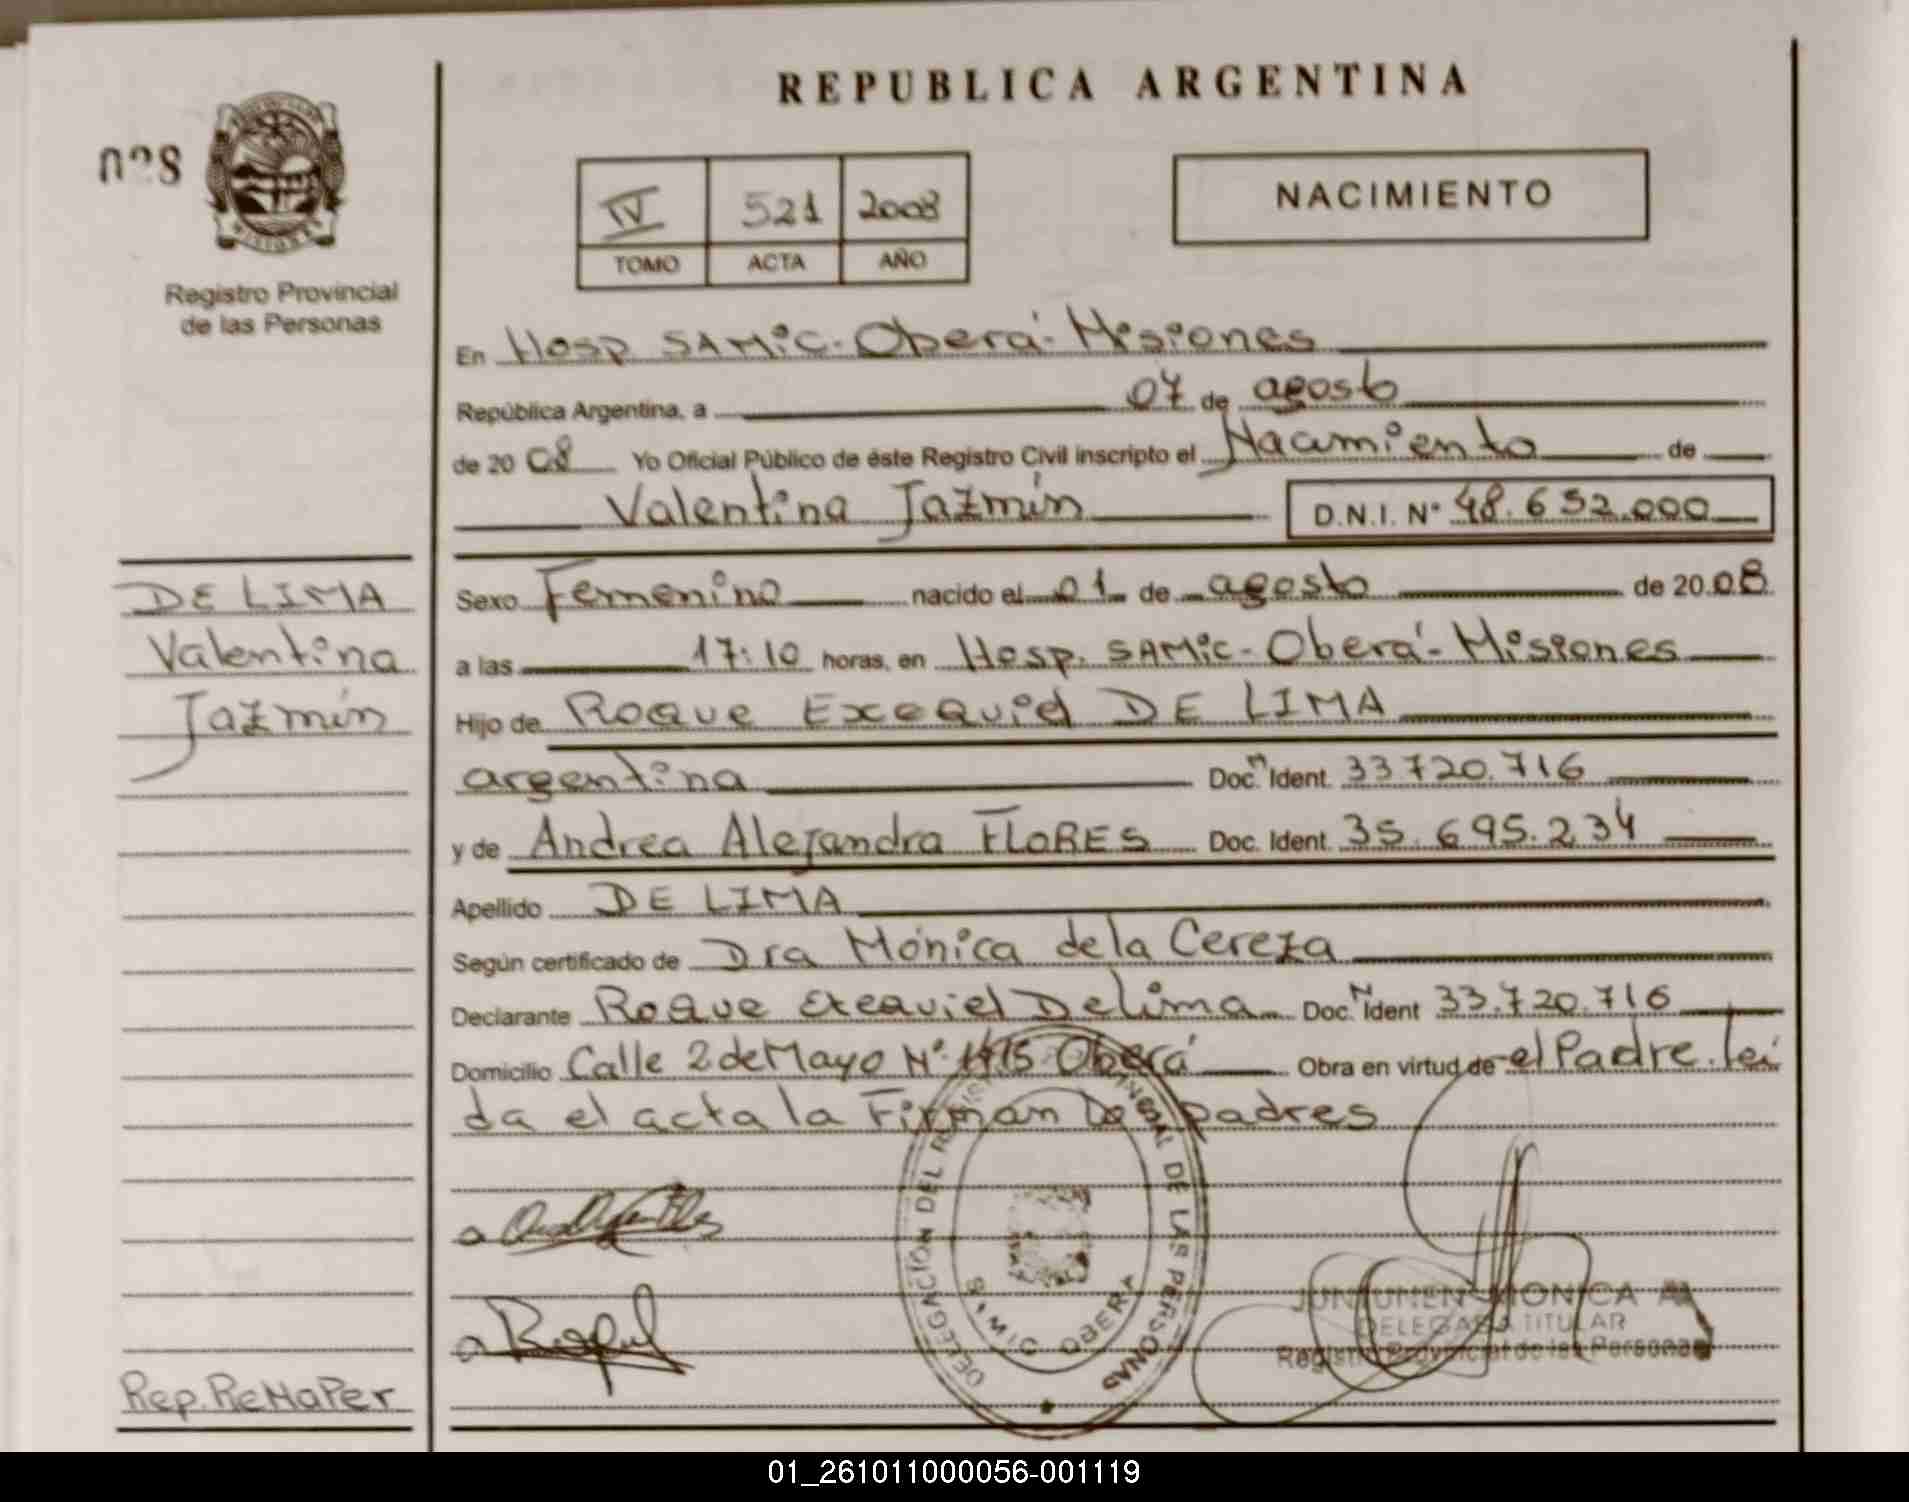 REPUBLICA ARGENTINA
028
IV 521 2008
TOMO ACTA AÑO
NACIMIENTO
MISIONES
Registro Provincial
de las Personas
En Hosp SAMic. Oberá. Misiones
República Argentina, a 07 de agosto
de 20 08 Yo Oficial Público de éste Registro Civil inscripto el Nacimiento de
Valentina Jazmín D.N.I. N° 48.652.000
DE LIMA
Valentina
Jazmín
Sexo Femenino nacido el 01 de agosto de 20 08
a las 17:10 horas, en Hosp. SAMic - Oberá - Misiones
Hijo de Roque Exequiel DE LIMA
argentina Doc. Ident. 33720.716
y de Andrea Alejandra FLORES Doc. Ident. 35.695.234
Apellido DE LIMA
Según certificado de Dra Mónica de la Cereza
Declarante Roque Exequiel De lima Doc. Ident 33.720.716
Domicilio Calle 2 de Mayo N° Oberá Obra en virtud de el Padre. lei
da el acta la Firman los padres
DELEGACIÓN DEL REGISTRO PROVINCIAL DE LAS PERSONAS
SAMIC OBERA
MONICA
DELEGADA TITULAR
Registro Provincial de las Personas
Rep. ReNaPer
01_261011000056-001119